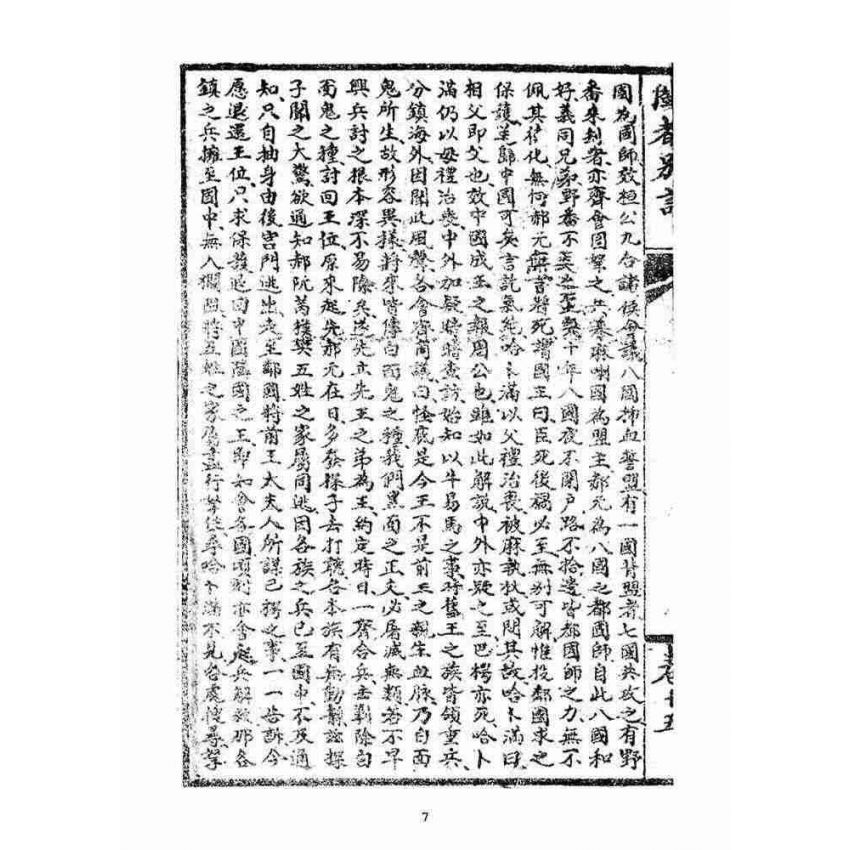 國為國師效桓公九合諸侯会議八國揷血誓盟有一國背盟者七國共攻之有野
番來刦者亦齊會圍拏之共舉麻喇國為盟主郝元為八國之都國師自此八國和
好義同兄弟野番不之至數十年八國夜不閉戶路不拾遺皆都國師之力無不
佩其德化無何郝元無言將死謂國王曰臣死後禍必至無別可解惟投鄰國求之
保護送歸中國可矣言訖氣絕哈卜滿以父禮治喪被麻執杖或問其故哈卜滿曰
相父即父也效中國成王之報周公也雖如此解說中外亦疑之至巴楞亦死哈卜
滿仍以母禮治喪中外加疑暗暗查訪始知以牛易馬之事時舊王之族皆領重兵
分鎮海外因聞此風聲各會齊商議曰怪底是今王不是前王之親生血脉乃白面
鬼所生故形容異樣將來皆傳白面鬼之種我們黑面之正支必屠滅無類若不早
興兵討之根本深不易除矣遂先立先王之弟為王約定時日一齊合兵去剿除白
面鬼之種討回王位原來起先郝元在日多發探子去打聽各本族有無動靜茲探
子聞之大驚欲通知郝阮萬獲樊五姓之家屬同逃因各族之兵已至國中不及通
知只自抽身由後宮門逃出走至鄰國將前王太夫人所謀巴楞之事一一告訴今
愿退還王位只求保護送回中國鄰國之王即知會各國頃刻亦會起兵解救那各
鎮之兵擁至國中無人攔阻將五姓之家屬盡行拏住尋哈卜滿不見各處搜尋拏
卷十五
7